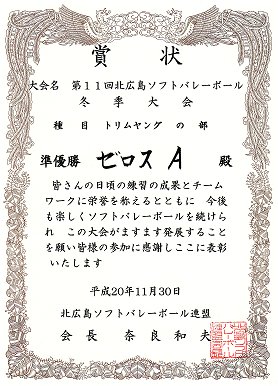 賞状
大会名 第11回北広島ソフトバレーボール
冬季大会
種目 トリムヤング の部
準優勝 ゼロスA 殿
皆さんの日頃の練習の成果とチーム
ワークに栄誉を称えるとともに 今後
も楽しくソフトバレーボールを続けら
れ この大会がますます発展すること
を願い皆様の参加に感謝しここに表彰
いたします
平成20年11月30日
北広島ソフトバレーボール連盟
会長 奈良和夫